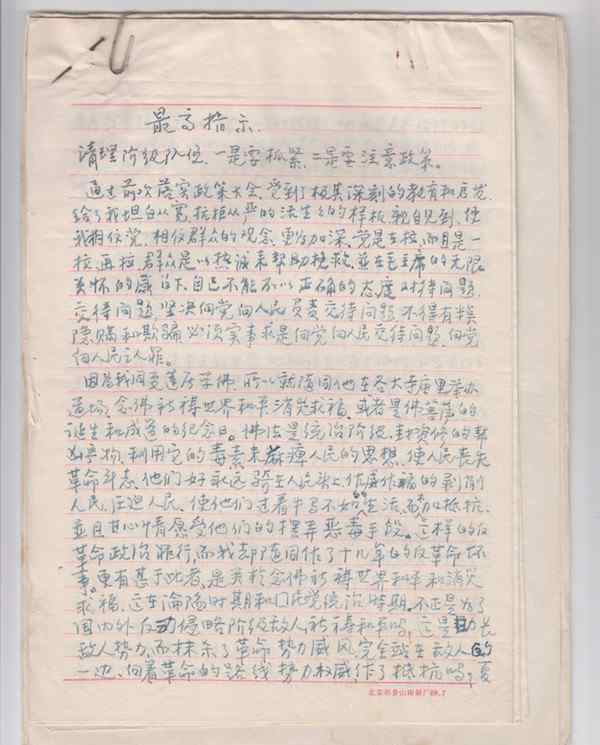 最高指示.
清理阶级队伍,一是要抓紧,二是要注意政策。
通过前次落实政策大会,受到了极其深刻的教育和启发,
给了我坦白从宽,抗拒从严的活生生的样板,亲自见到,使
我相信党,相信群众的观念,更为加深,党是在拉,而且是一
拉再拉,群众是以热诚来帮助挽救,并在毛主席的无限
关怀的 下,自己不能不以正确的态度对待问题,
交待问题,坚决向党向人民负责交待问题,不得有半
隐瞒和欺骗,必须实事求是向党向人民交待问题,向党
向人民认罪。
因为我同 学佛,所以就随同他在各大寺庙里举办
道场,念佛祈祷世界和平消灾求福,或者是佛菩萨的
诞生和成道的纪念日。佛法是统治阶级,封资修的帮
凶产物,利用它的毒素来麻痺人民的思想,使人民丧失
革命斗志,他们好永远骑在人民头上作威作福的剥削
人民,压迫人民,使他们过着牛马不如的生活,而不加抵抗,
並且甘心情愿受他们的摆弄恶毒手段。这样的反
革命政治罪行,而我却随同作了十几年的反革命坏
事。更有甚于此者,是关于念佛祈祷世界和平和消灾
求福,这在沦陷时期和 党统治时期,不正是为了
国内外反动侵略阶级敌人祈祷和平吗,这是助长
敌人势力,而抹杀了革命势力威风,完全站在敌人的
一边,向着革命的路线势力权威,作了抵抗吗,夏
北京市香山印刷厂69.7